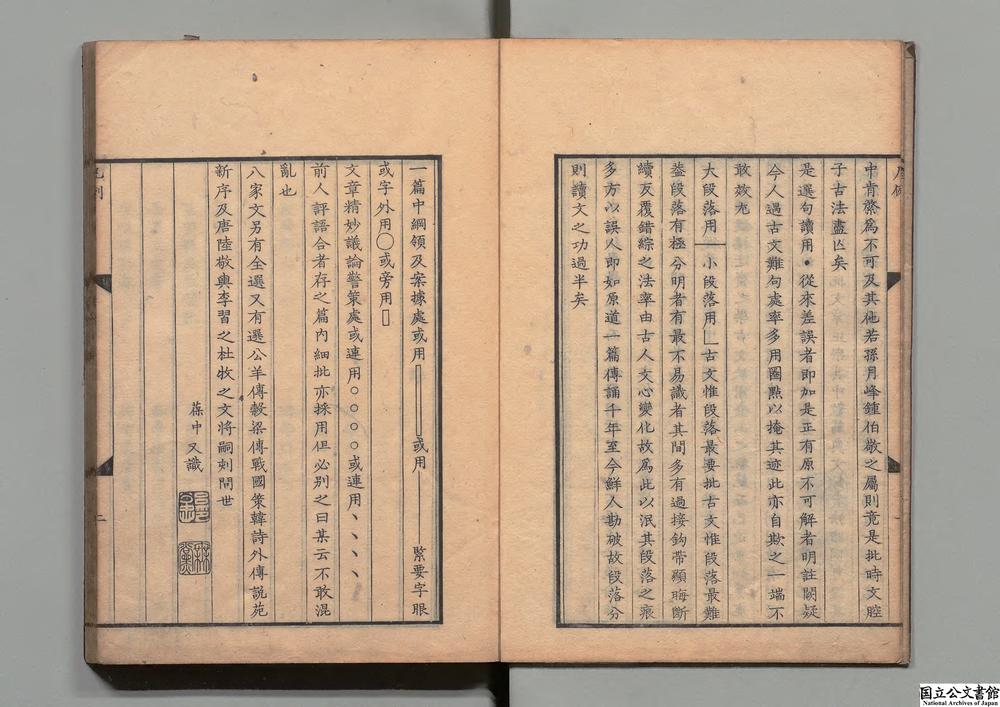 中肯綮爲不可及其他若孫月峰鍾伯敬之屬則竟是批時文腔
子古法盡亾矣
是選句讀用•從來差誤者即加是正有原不可解者明註闕疑
今人遇古文難句處率多用圈㸃以掩其迹此亦自欺之一端不
敢效尤
大段落用 小段落用 古文惟段落最要批古文惟段落最難
盖段落有極分明者有最不易識者其間多有過接鈎帶顯晦斷
續反覆錯綜之法率由古人文心變化故爲此以泯其段落之痕
多方以誤人即如原道一篇傳誦千年至今鮮人勘破故段落分
則讀文之功過半矣
一篇中綱領及案據處或用 或用 緊要字眼
或字外用〇或旁用▯
文章精妙議論警策處或連用○○○○或連用丶丶丶丶
前人評語合者存之篇内細批亦採用但必别之曰某云不敢混
亂也
八家文另有全選又有選公羊傳榖梁傳戰國策韓詩外傳說苑
新序及唐陸敬輿李習之杜牧之文將嗣刻問世
葆中又識
二
国立公文書館
National Archives of Japan